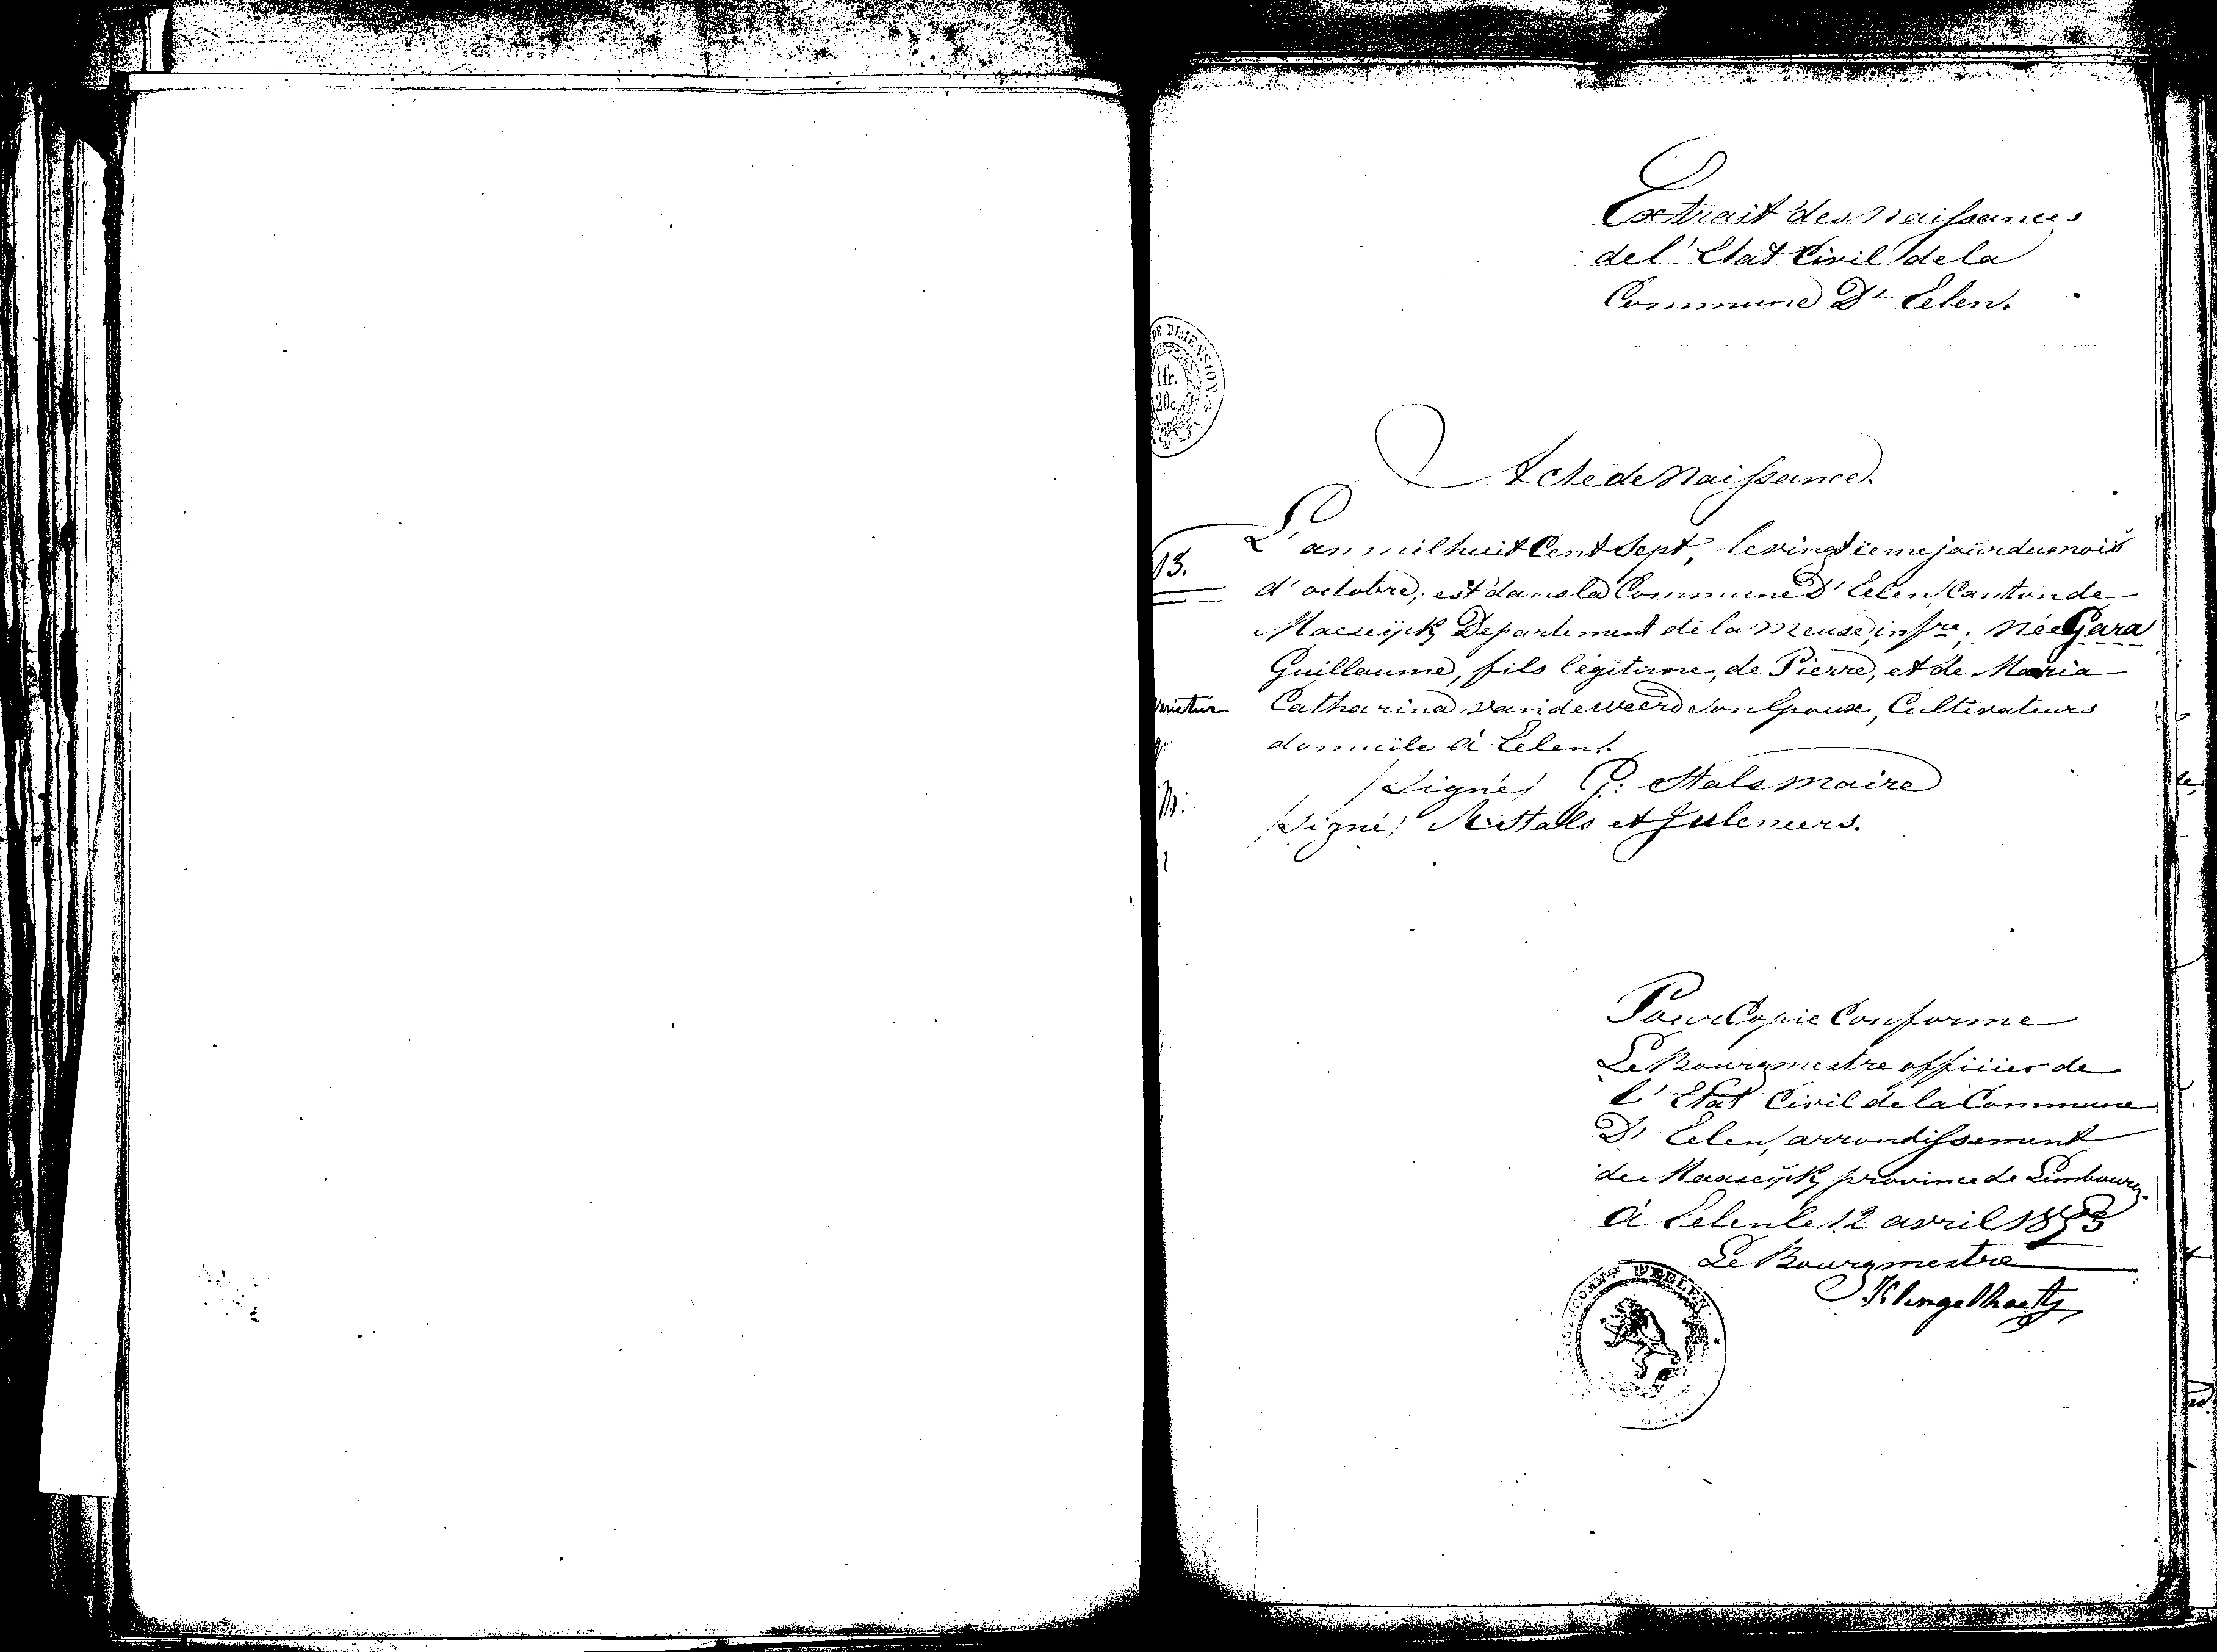 Extrait des naissances
de l'Etat Civil de la
Commune D' Eelen.
DE DIMENSION
1fr.
20c.
Acte de Naissance.
L'an mil huit Cent Sept, le vingtieme jour du mois
13.
d'octobre, est dans la Commune D' Eelen, Canton de
Maeseijck, Departement de la Meuse, infre, née Gara
Guillaume, fils légitime, de Pierre, et de Maria
Catharina vandeweerd son Epouse, Cultivateurs
domicile à Eelen.
/Signé/ P: Stals maire
/Signé/ Stals et Juleners.
Pour Copie Conforme
Le Bourgmestre officier de
l'Etat Civil de la Commune
D' Eelen, arrondissement
de Maaseijck, province de Limbourg.
à Eelen le 12 avril 1853
Le Bourgmestre
D'EELEN